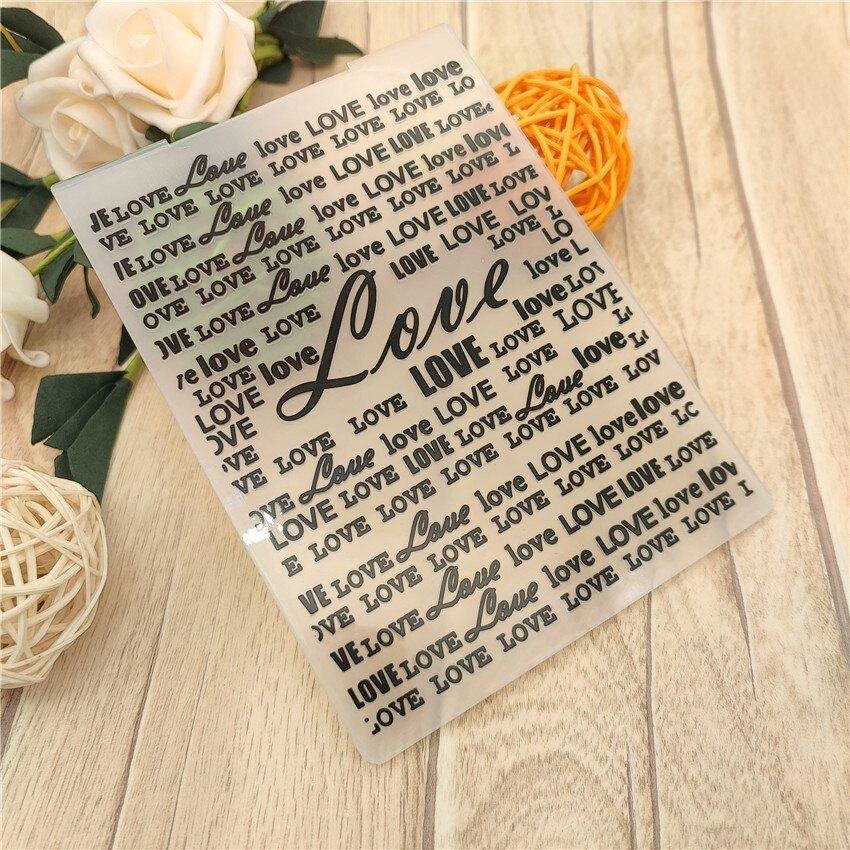 LOVE Love love LOVE love love
VE LOVE LOVE LOVE LOVE LOVE LO
VE LOVE Love love LOVE LOVE LOVE
OVE LOVE Love love LOVE love love
OVE LOVE LOVE LOVE LOVE LOVE
OVE LOVE Love love LOVE LOVE LOVE
love LOVE LOVE LOVE LOV
LOVE love Love LOVE
LOVE love LO
LOVE love LOV
OVE LOVE LOVE LOVE
VE LOVE LOVE LOVE LOVE
VE Love love LOVE LOVE love
LOVE LOVE LOVE LOVE Love LOV
E LOVE LOVE LOVE LOVE LOVE LOVE
VE LOVE Love love LOVE love love
OVE LOVE LOVE LOVE LOVE LOVE LO
VE LOVE Love love LOVE LOVE LOVE
LOVE LOVE Love love LOVE love lov
LOVE LOVE LOVE LOVE LOVE LOVE